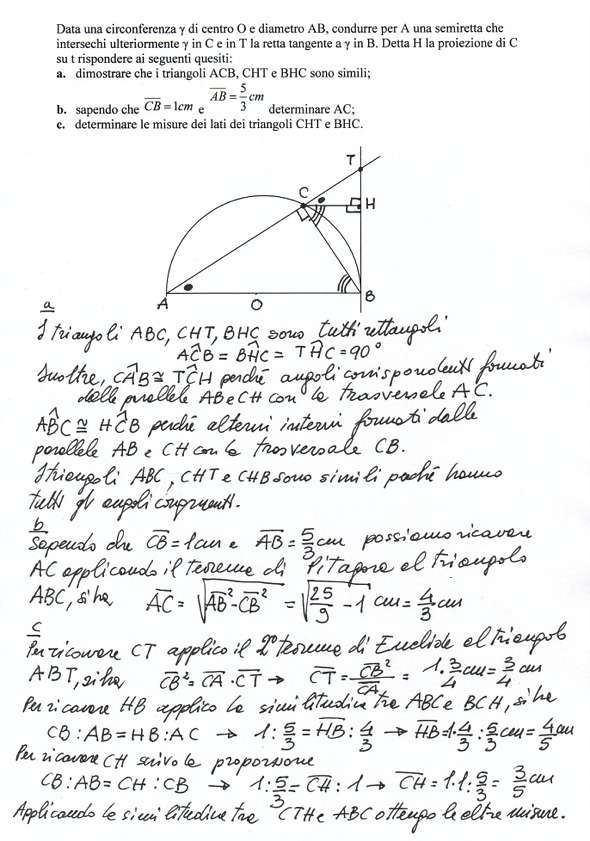 Data una circonferenza γ di centro O e diametro AB, condurre per A una semiretta che
intersechi ulteriormente γ in C e in T la retta tangente a γ in B. Detta H la proiezione di C
su t rispondere ai seguenti quesiti:
a. dimostrare che i triangoli ACB, CHT e BHC sono simili;
b. sapendo che CB = 1cm e AB = 5/3 cm determinare AC;
c. determinare le misure dei lati dei triangoli CHT e BHC.
T
C
H
A
O
B
a
I triangoli ABC, CHT, BHC sono tutti rettangoli
AĈB = BĤC = TĤC = 90°
Inoltre, CÂB ≅ TĈH perché angoli corrispondenti formati
dalle parallele AB e CH con la trasversale AC.
AB̂C ≅ HĈB perché alterni interni formati dalle
parallele AB e CH con la trasversale CB.
I triangoli ABC, CHT e CHB sono simili poiché hanno
tutti gli angoli congruenti.
b
Sapendo che CB = 1cm e AB = 5/3 cm possiamo ricavare
AC applicando il teorema di Pitagora al triangolo
ABC, si ha AC = √(AB² - CB²) = √(25/9 - 1) cm = 4/3 cm
c
Per ricavare CT applico il 2° teorema di Euclide al triangolo
ABT, si ha CB² = CA · CT → CT = CB²/CA = 1·3/4 cm = 3/4 cm
Per ricavare HB applico la similitudine tra ABC e BCH, si ha
CB : AB = HB : AC → 1 : 5/3 = HB : 4/3 → HB = 1·4/3 : 5/3 cm = 4/5 cm
Per ricavare CH scrivo la proporzione
CB : AB = CH : CB → 1 : 5/3 = CH : 1 → CH = 1·1 : 5/3 = 3/5 cm
Applicando la similitudine tra CTH e ABC ottengo le altre misure.